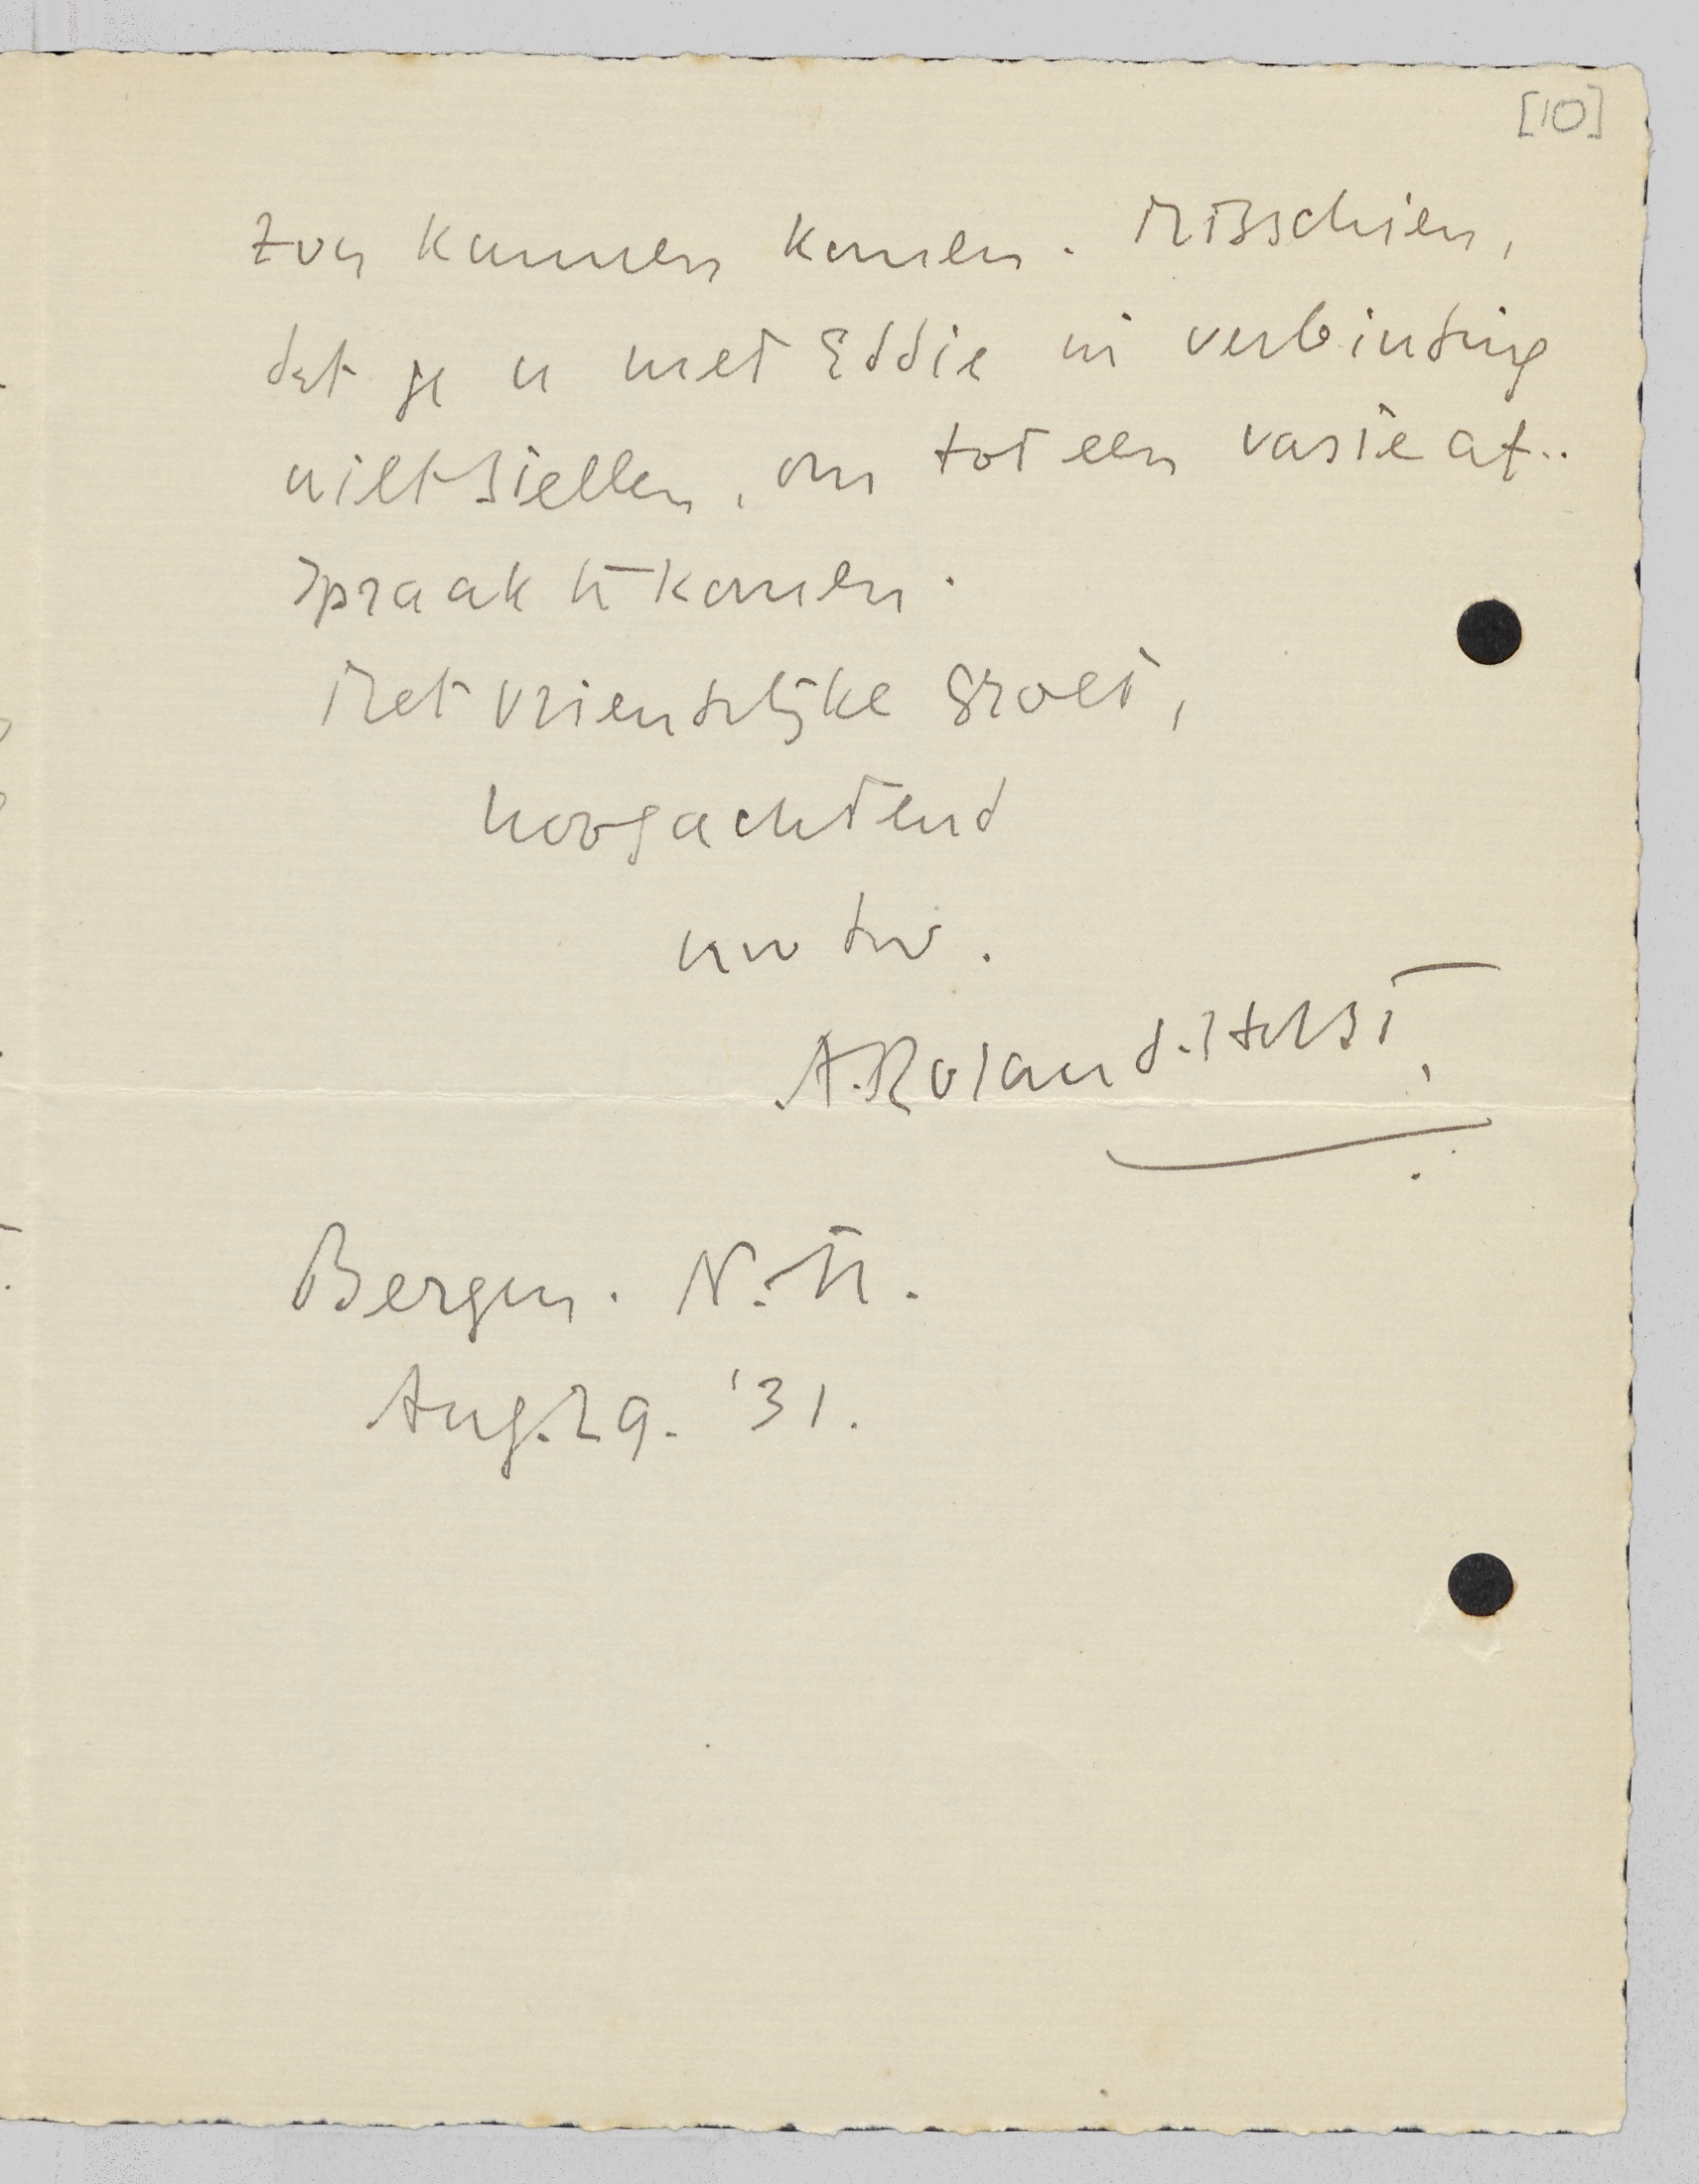 [10]
zou kunnen komen. Misschien,
dat je u met Eddie in verbinding
wilt stellen, om tot een vaste af-
spraak te komen.
Met vriendelijke groet,
hoogachtend
uw dw.
A. Roland Holst
Bergen. N.H.
Aug. 29. '31.